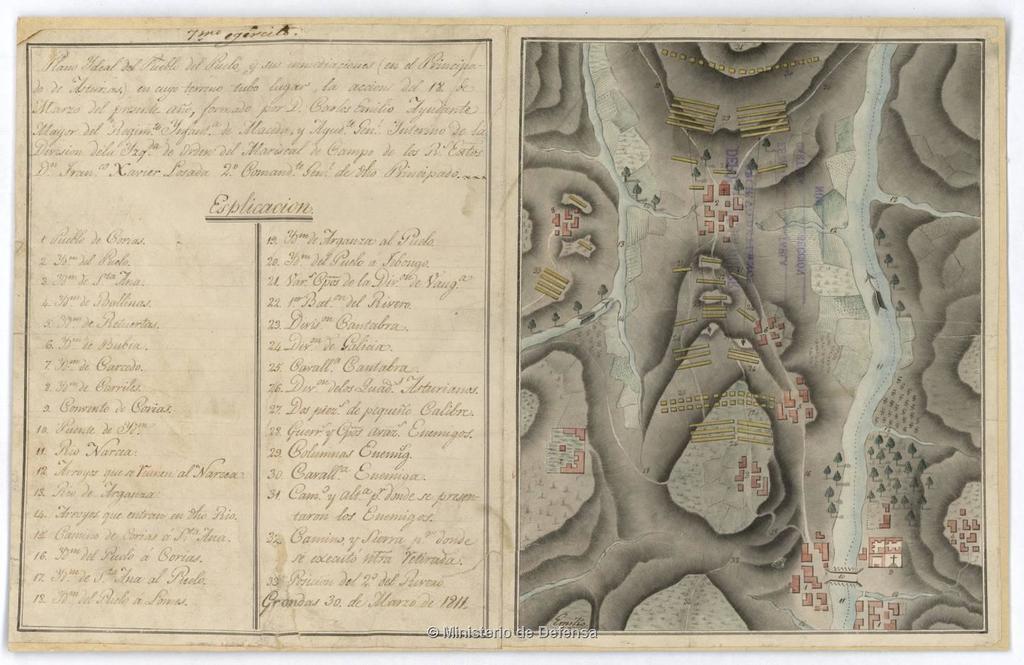 7.mo egército.
Plano Ideal del Pueblo del Puelo, y sus inmediaciones (en el Principa-
do de Asturias) en cuyo terreno tubo lugar, la accion del 18 de
Marzo del presente año, formado por D. Carlos Emilio Ayudante
Mayor del Regim.to Infant.a de Macéda, y Ayud.te Gen.l Interino de la
Division dela Izq.da de orden del Mariscal de Campo de los R.s Extos
D.n Fran.co Xavier Losada 2.o Comand.te Gen.l de dho Principado.
Esplicacion.
1. Pueblo de Corias.
2. Yd.m del Puelo.
3. Yd.m de S.ta Ana.
4. Yd.m de
5. Yd.m de Retuertas.
6. Yd.m de Bubia.
7. Yd.m de Carcedo.
8. Yd.m de Carriles.
9. Convento de Corias.
10. Puente de Yd.m
11. Rio Narcea.
12. Arroyos que al Narcea.
13. Rio de Arganza.
14. Arroyos que entran en dho Rio.
15. Camino de Corias á S.ta Ana.
16. Yd.m del Puelo á Corias.
17. Yd.m de S.ta Ana al Puelo.
18. Yd.m del Puelo á Lomes.
19. Yd.m de Arganza al Puelo.
20. Yd.m del Puelo á
21. Var.s Cpos de la Div.on de Vang.a
22. 1.er Bat.on del Rivero.
23. Divis.on Cantabra.
24. Div.on de Galicia.
25. Cavall.a Cantabra.
26. Div.on delos Asturianos.
27. Dos piez.s de pequeño Calibre.
28. Guerr.s y Cpos avaz.s Enemigos.
29. Columnas Enemig.
30. Cavall.a Enemiga.
31. Cam.o y alt.a p.r donde se presen-
taron los Enemigos.
32. Camino, y Sierra p.r donde
se executó ntra Retirada.
33. Posicion del 2.o del Rivero.
Grandas 30. de Marzo de 1811.
Emilio
© Ministerio de Defensa